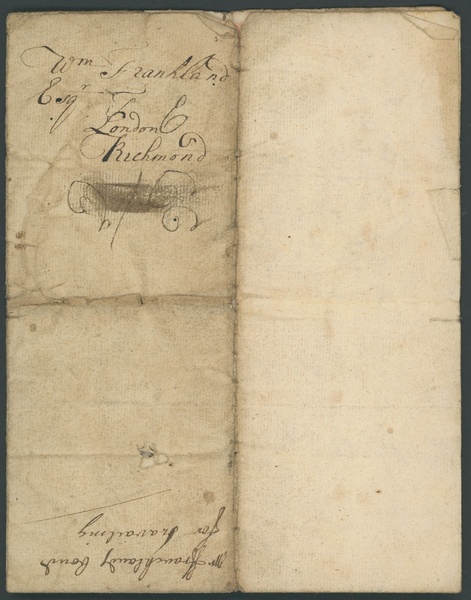 Wm Frankland
Esqr
London
Richmond
Mr Franklands bond
for travailing